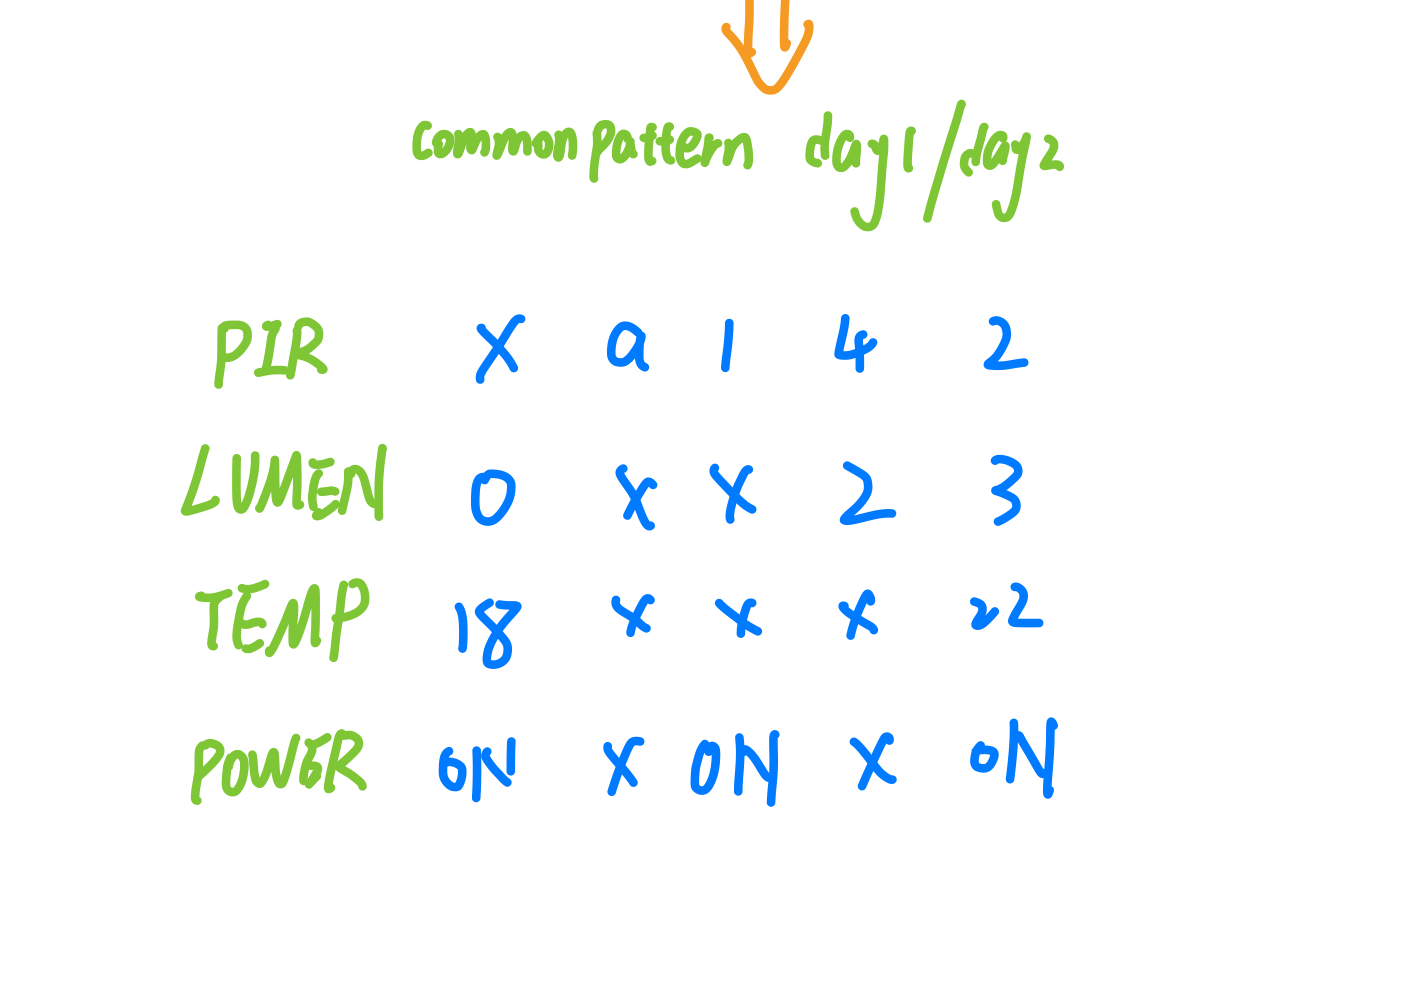 common pattern day1/day2
PIR X a 1 4 2
LUMEN 0 x x 2 3
TEMP 18 x x x 22
POWER ON X ON X ON